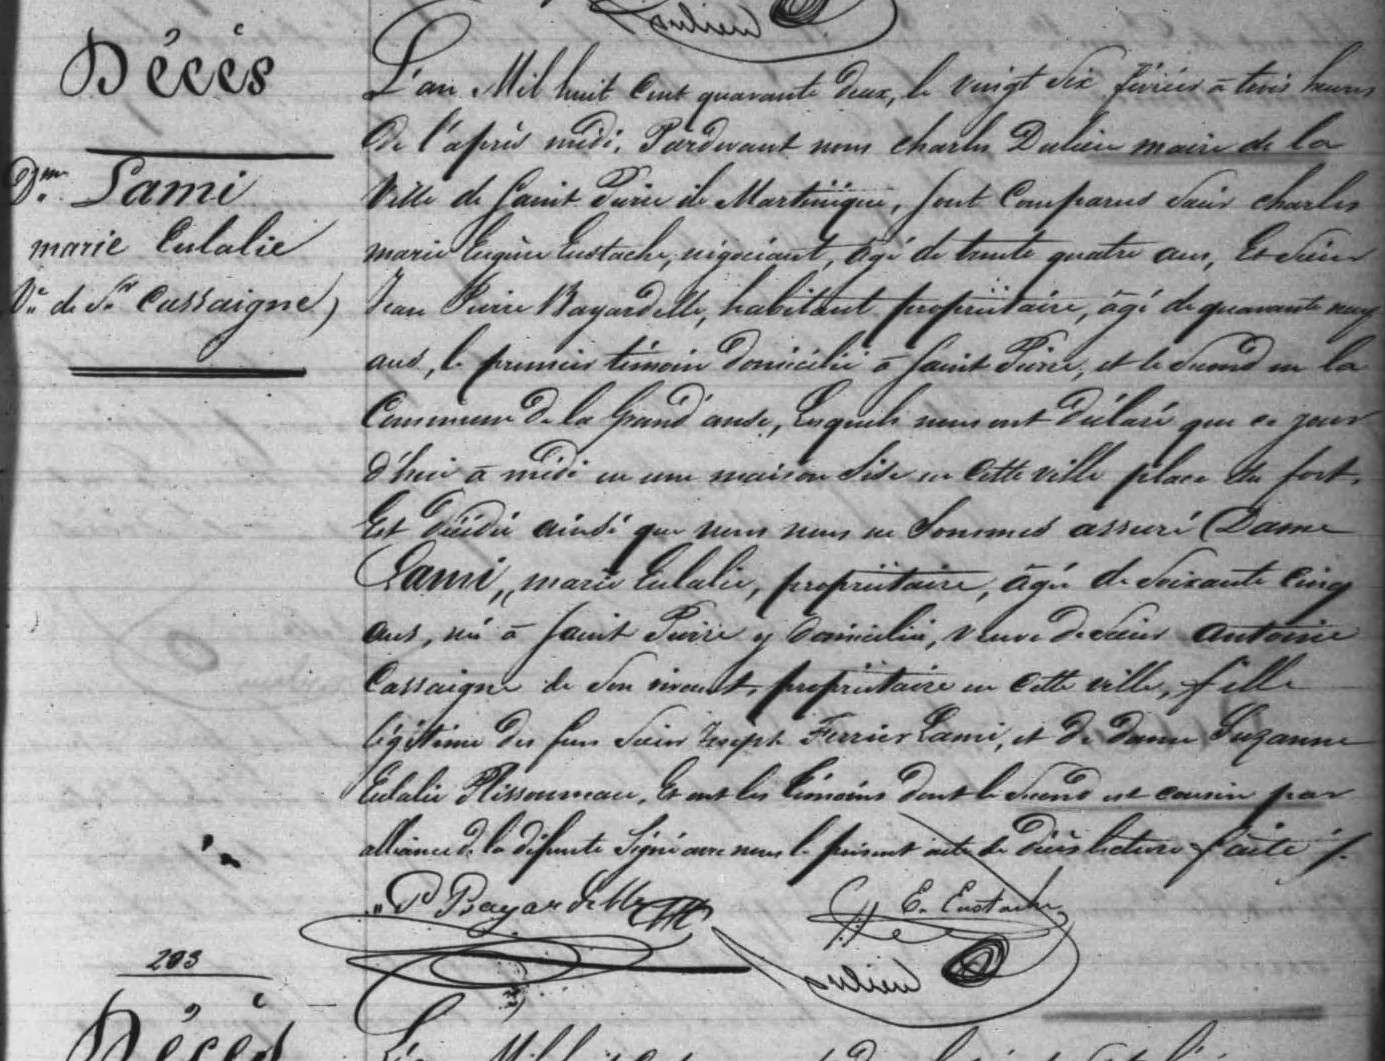 Décès
Dme Lami
marie Eulalie
Ve de Sr Cassaigne)
L'an Mil huit Cent quarante deux, le vingt six février à trois heures
de l'après midi. Pardevant nous charles Dulieu maire de la
Ville de Saint Pierre ile Martinique, sont Comparus Sieur charles
marie Eugène Eustache, négociant, âgé de trente quatre ans, Et Sieur
Jean Pierre Bayardelle, habitant propriétaire, âgé de quarante neuf
ans, le premier témoin domicilié à Saint Pierre, et le Second en la
Commune de la Grand'anse, Lesquels nous ont déclaré que ce jour
d'hui à midi en une maison Sise en cette ville place du fort,
Est décédée ainsi que nous nous en Sommes assuré Dame
Lami,, marie Eulalie, propriétaire, âgée de Soixante Cinq
ans, née à Saint Pierre y domiciliée, veuve de Sieur Antoine
Cassaigne de Son vivant, propriétaire en cette ville, fille
légitime des feus Sieur Joseph Ferrier Lami, et de dame Suzanne
Eulalie Plissonneau, Et ont les témoins dont le Second est cousin par
alliance de la défunte Signé avec nous le présent acte de décès lecture faite ./.
P Bayardelle
E. Eustache
Dulieu
203
Décès